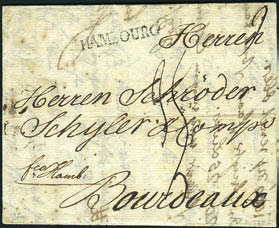 HAMBOURG
Herren
Herren Schröder
Schyler & Comp
fco Hamb.
Bourdeaux